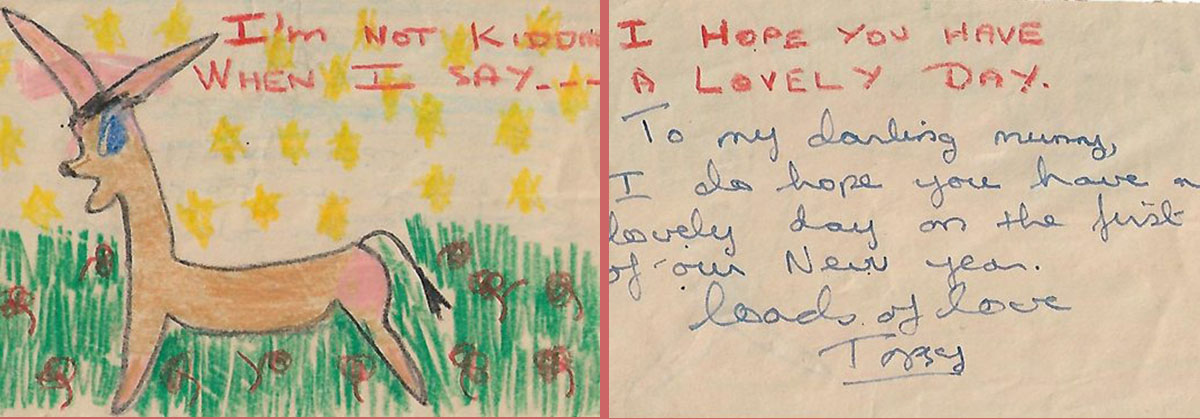 I'm NOT KIDDIN
WHEN I SAY---
I HOPE YOU HAVE
A LOVELY DAY.
To my darling mummy,
I do hope you have a
lovely day on the first
of our New year.
loads of love